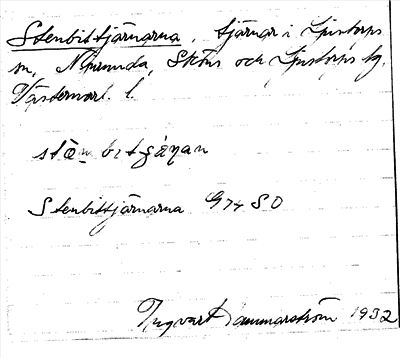 Stenbittjärnarna, tjärnar i Ljustorps
sn, Njurunda, Sköns och Ljustorps tg.
Västernorrl. l.
stɑ̀ːn bɪtçæ̀ɳan
Stenbittjärnarna G74 SO
Ingvart Hammarström 1932